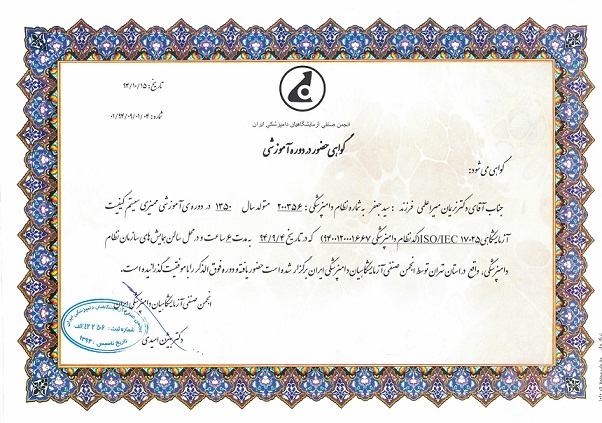 تاریخ: ۹۴/۱۰/۱۵
شماره: ۰۱/۹۴/۰۹/۰۱/۰۴
انجمن صنفی آزمایشگاهیان دامپزشکی ایران
گواهی حضور در دوره آموزشی
گواهی می شود:
جناب آقای دکتر نریمان میراعلمی فرزند : سید جعفر به شماره نظام دامپزشکی: ۲۰۰۳۵۶ متولد سال ۱۳۵۰ در دوره ی آموزشی ممیزی سیستم کیفیت
آزمایشگاهی ISO/IEC ۱۷۰۲۵ (کد نظام دامپزشکی ۹۴۰۰۱۲۰۰۰۱۶۶۷) که در تاریخ ۹۴/۹/۴ به مدت ۶ ساعت و در محل سالن همایش های سازمان نظام
دامپزشکی، واقع در استان تهران توسط انجمن صنفی آزمایشگاهیان دامپزشکی ایران برگزار شده است حضور یافته و دوره فوق الذکر را با موفقیت گذرانیده است.
انجمن صنفی آزمایشگاهیان دامپزشکی ایران
دکتر امیدی
شماره ثبت:
تاریخ تاسیس: ۱۳۹۳